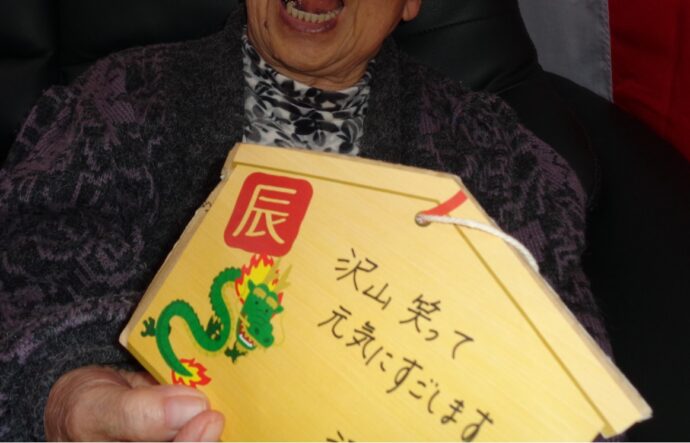 辰
沢山 笑って
元気にすごします